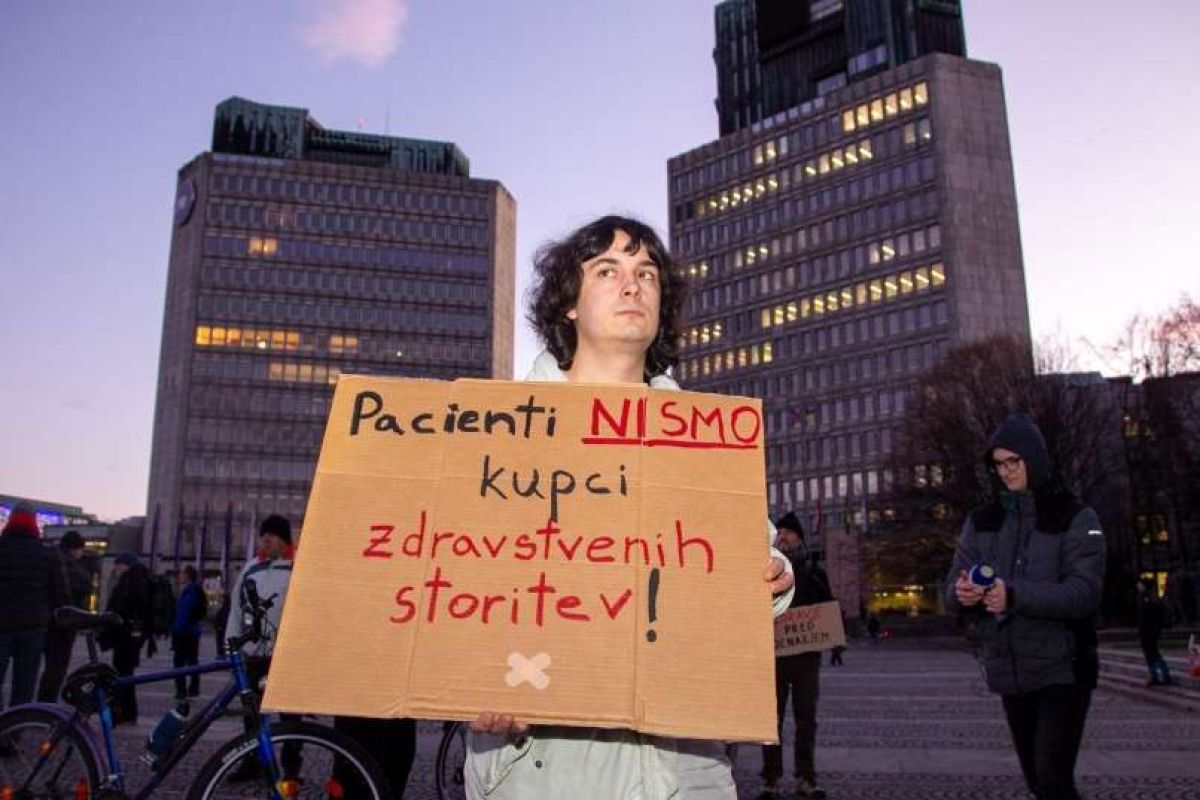 Pacienti NISMO
kupci
zdravstvenih
storitev!
PRED